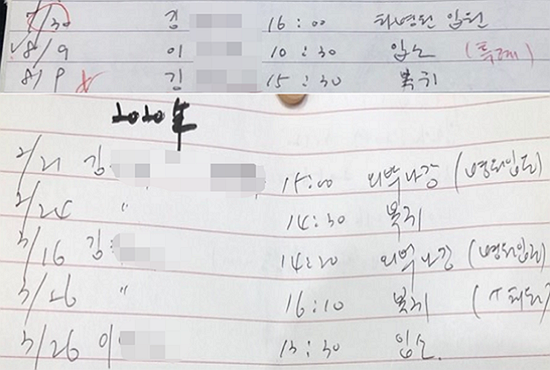 7/30 김 16:00 입원
8/9 이 10:30 입소 (특례)
8/9 김 15:30 복귀
2020年
2/21 김 15:00 외박나감 (병원입원)
2/24 " 14:30 복귀
3/16 김 14:20 외박나감 (병원입원)
3/26 " 16:10 복귀
3/26 이 13:30 입소.